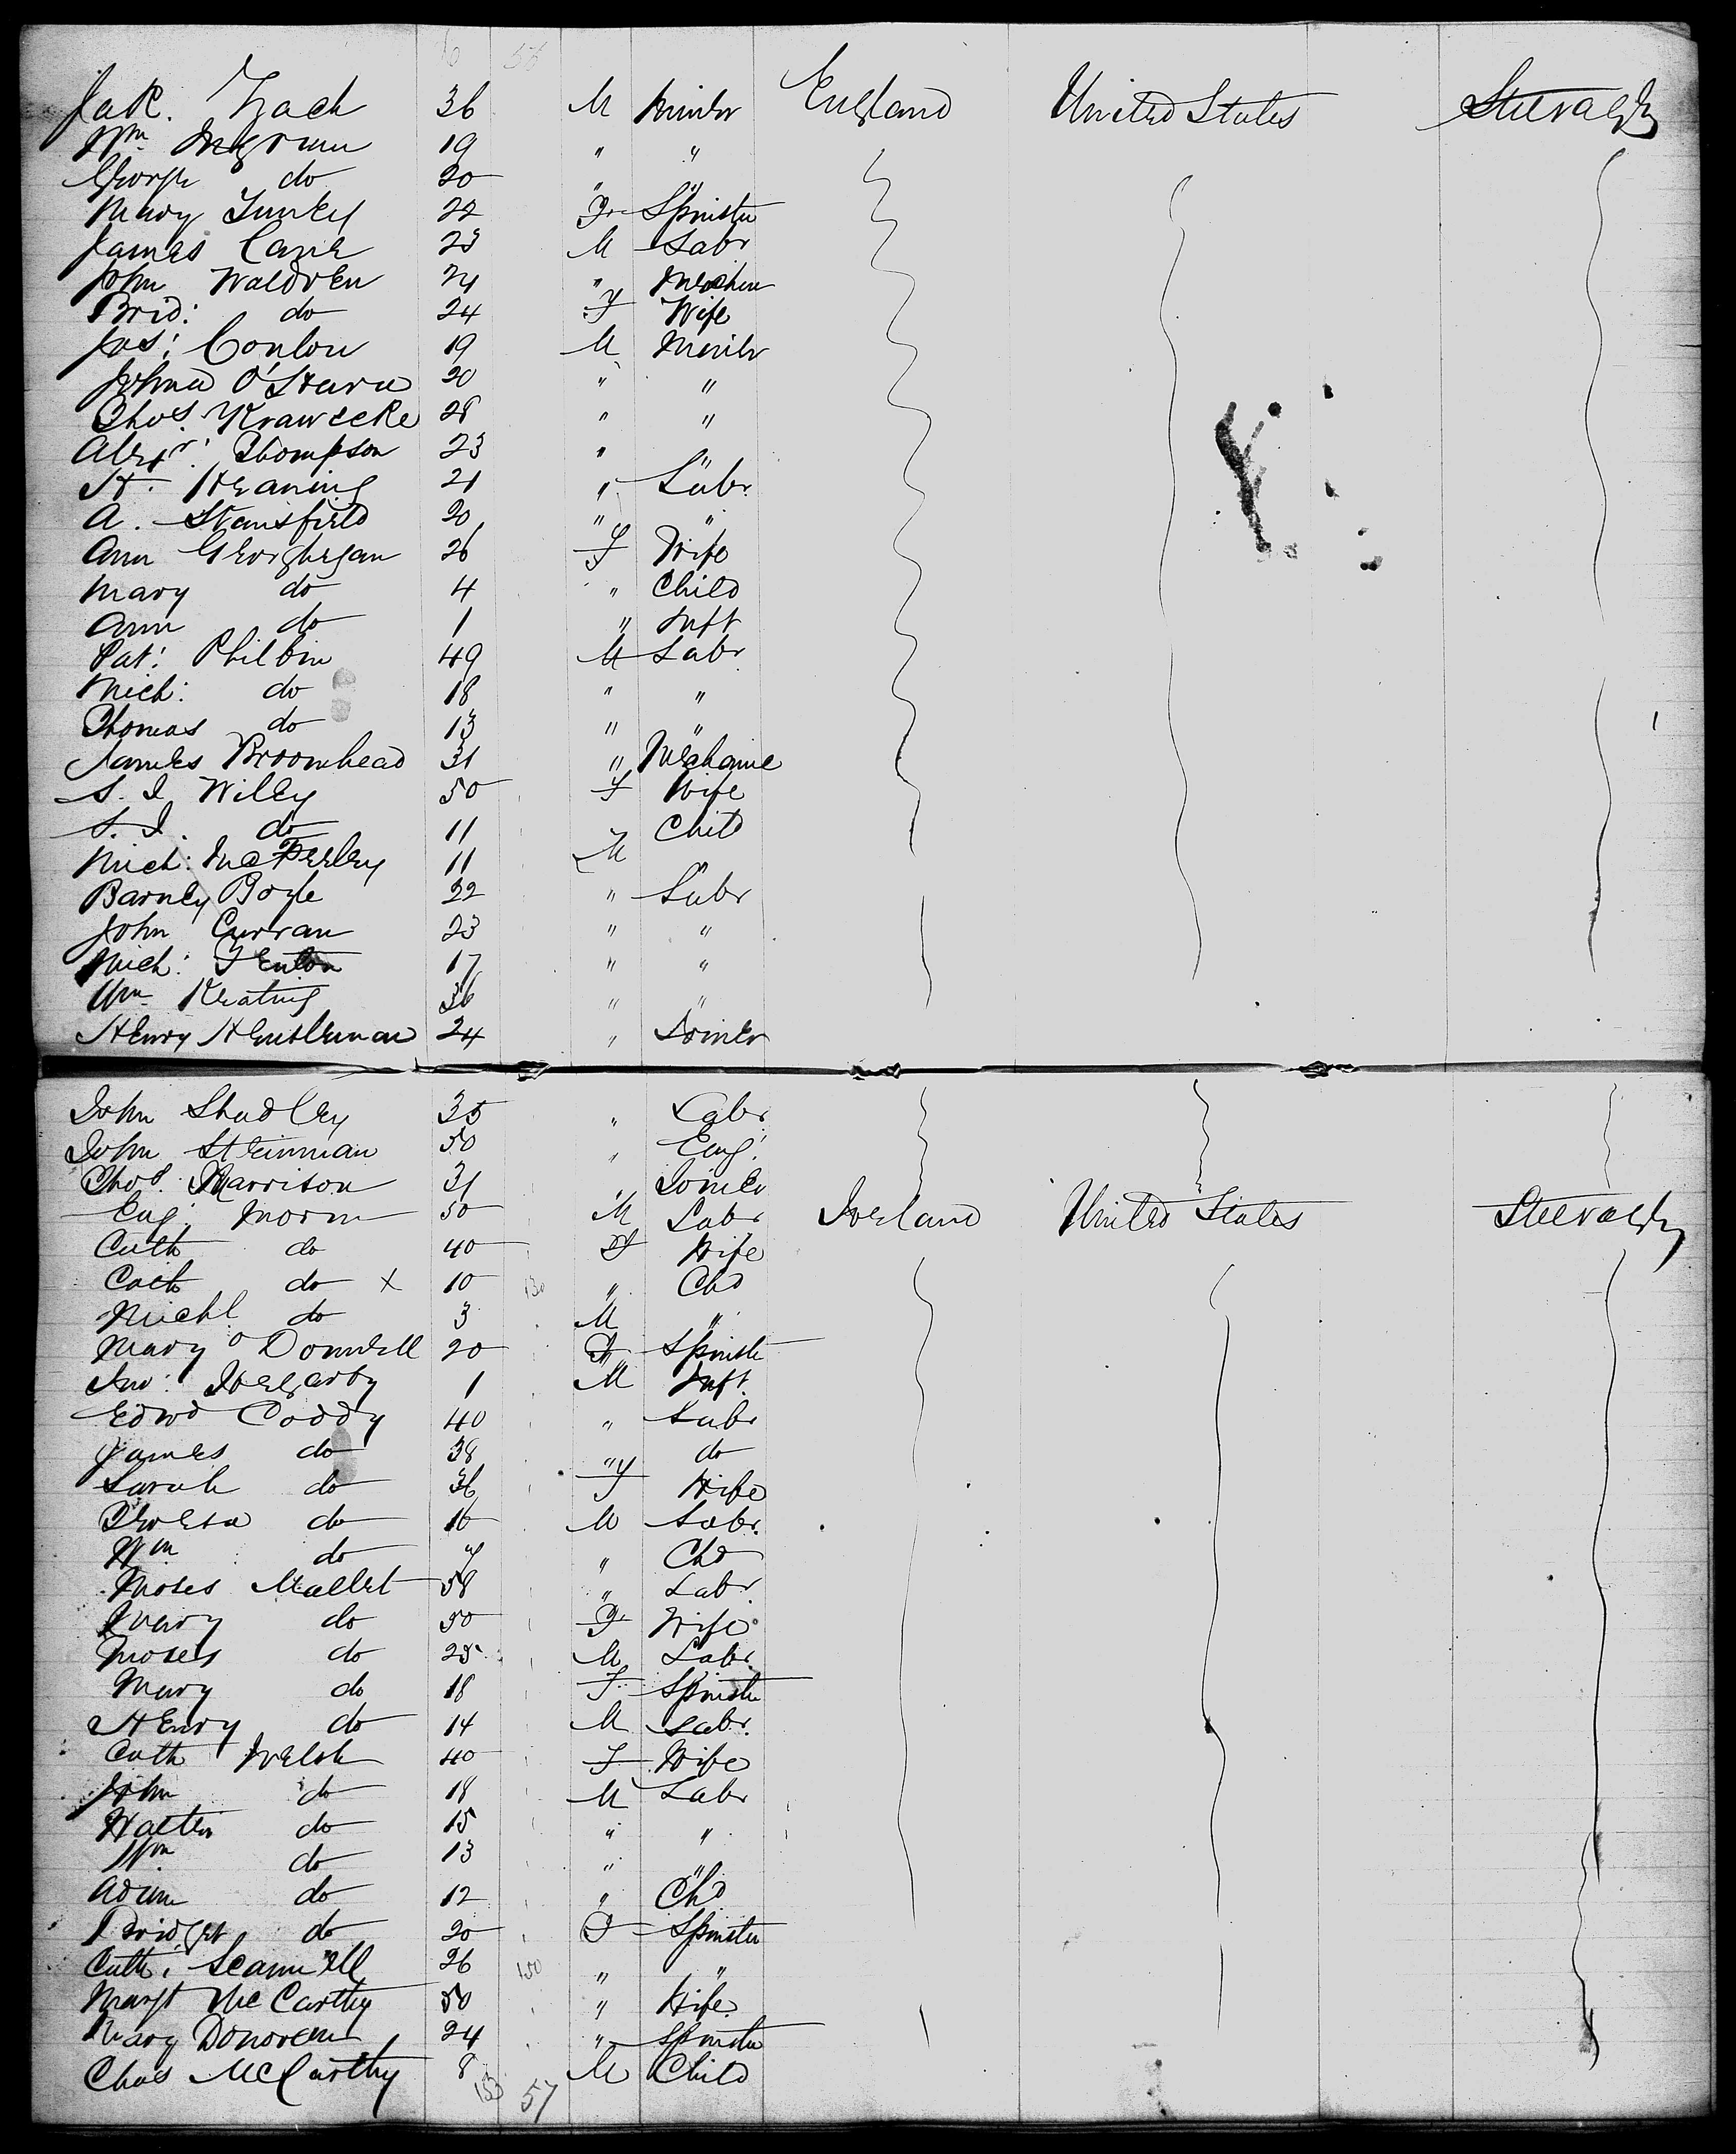 6 56
Jak. Zach 36 M Miner England United States Steerage
Wm Ingram 19 " "
George do 20 " "
Mary Tunley 22 F Spinster
James Cane 23 M Labr
John Waldren 24 " Mechin
Brid: do 24 F Wife
Jas: Conlon 19 M Miner
Johna O'Hara 20 " "
Thos. Krawecke 28 " "
Alexr. Thompson 23 " "
H. Keaning 21 " Labr
A. Stansfield 20 " "
Ann Georghegan 26 F Wife
Mary do 4 " Child
Ann do 1 " Inft
Pat: Philbin 49 M Labr
Mich: do 18 " "
Thomas do 13 " "
James Broomhead 31 " Mechanic
S. I. Wiley 50 F Wife
S. I. do 11 Child
Mich: 11 M "
Barney Boyle 22 " Labr
John Curran 23 " "
Mich: Fenton 17 " "
Wm Keating 36 " "
Henry 24 " Joiner
John Shadley 35 " Labr
John Steinman 50 " Eng:
Thos. Harrison 31 " Joiner
Eug: Morn 50 M Labr Ireland United States Steerage
Cath do 40 F Wife
Cath do x 10 130 " Chd
Michl do 3 M "
Mary O Donnell 20 F Spinster
Jno: Hegarty 1 M Inft.
Edwd Coddy 40 " Labr
James do 38 " do
Sarah do 36 F Wife
Theresa do 16 M Labr.
Wm do 7 " Chd
Moses Mallet 58 " Labr
Mary do 50 F Wife
Moses do 25 M Labr
Mary do 18 F Spinster
Henry do 14 M Labr.
Cath Welsh 40 F Wife
John do 18 M Labr
Walter do 15 " "
Wm do 13 " "
Adam do 12 " Chd
Bridget do 20 F Spinster
Cath: Scannell 26 150 " "
Margt McCarthy 50 " Wife
Mary Donovan 24 " Spinster
Chas McCarthy 8 M Child
153 57